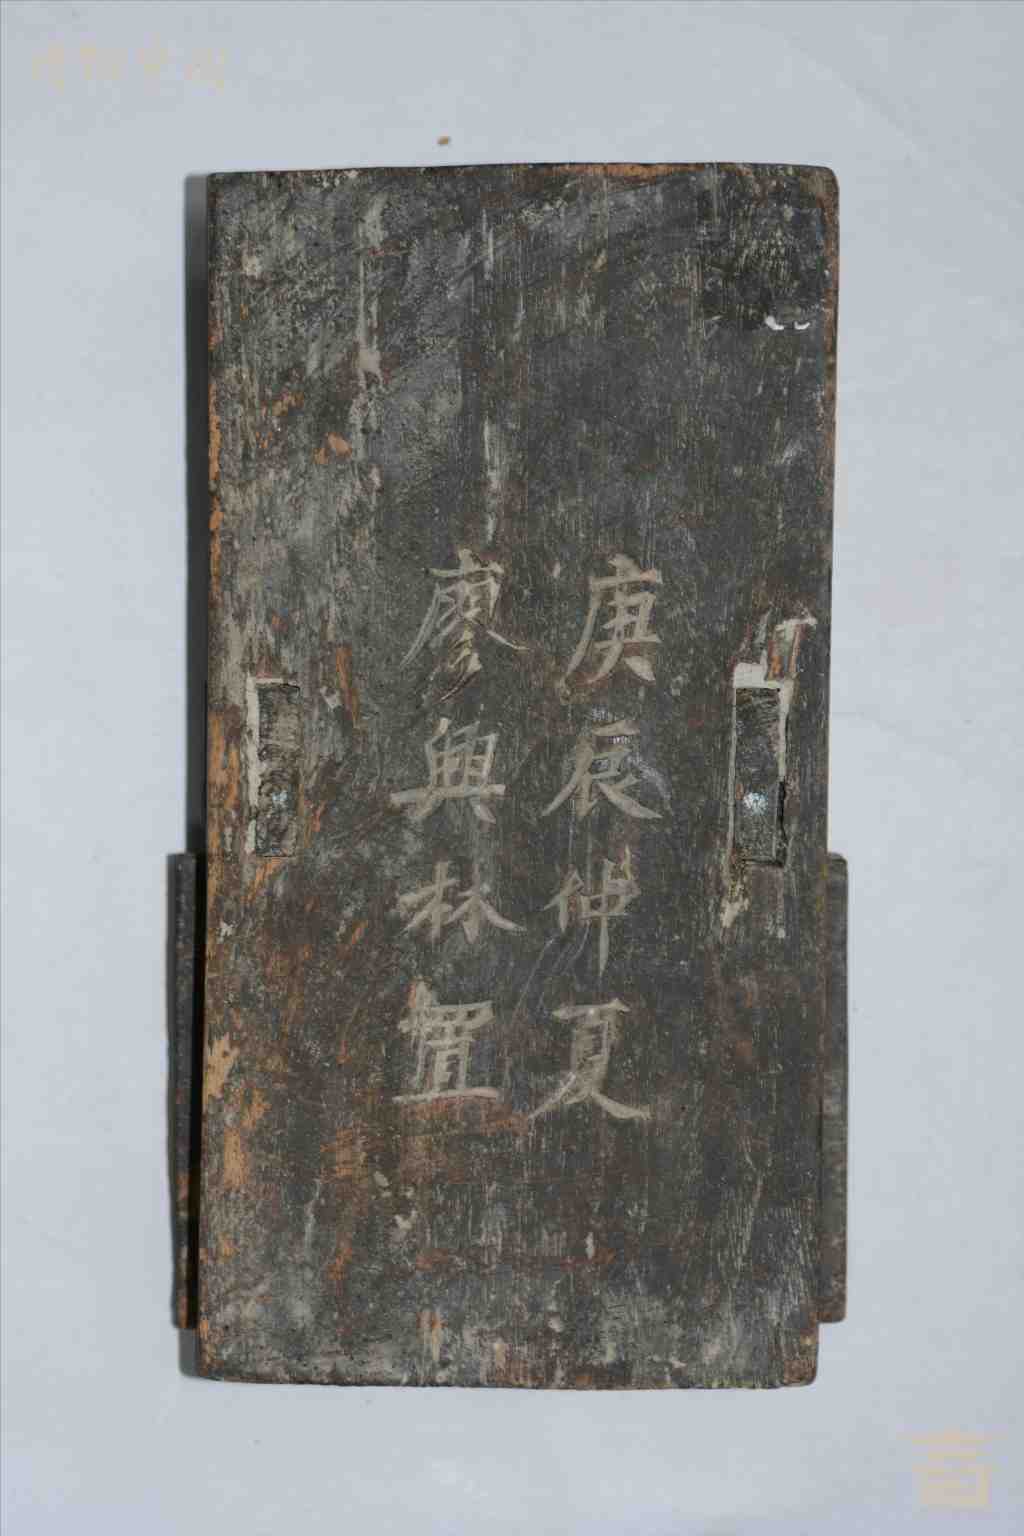 庚辰仲夏
廖興林置